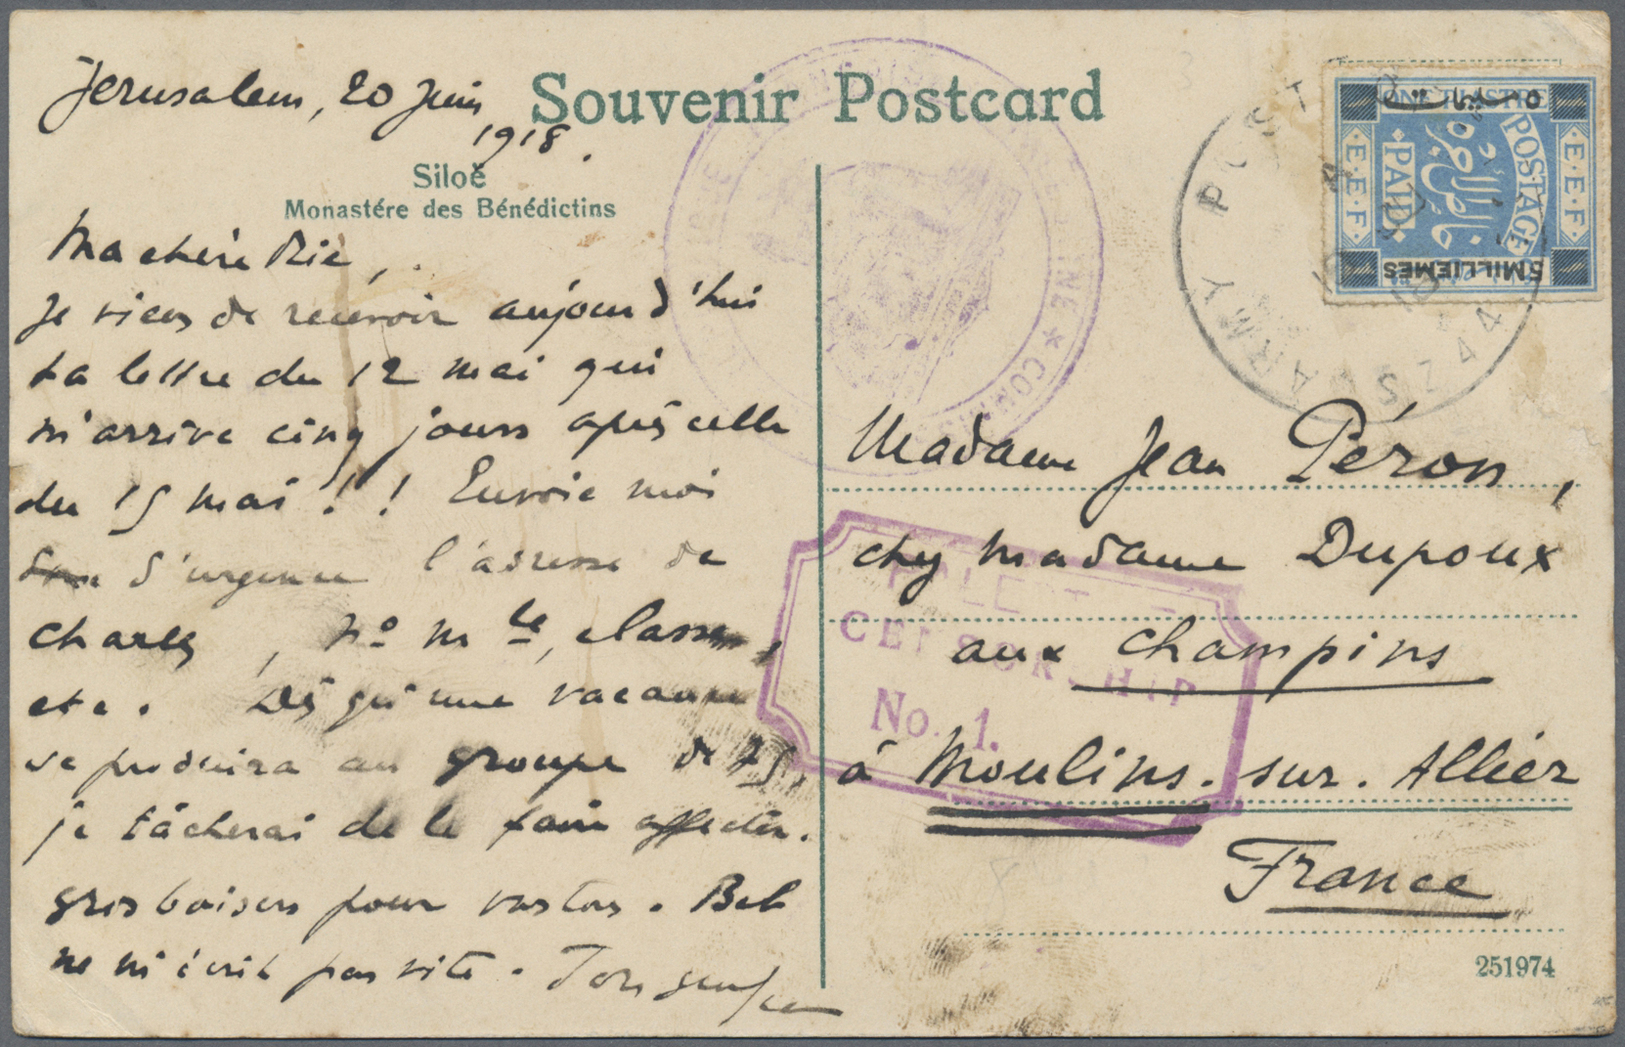 Jerusalem, 20 Juin
1918.
Souvenir Postcard
Siloë
Monastére des Bénédictins
Ma chère
Je viens de recevoir aujourd'hui
ta lettre du 12 mai qui
m'arrive cinq jours après celle
du 15 mai !! Envoie moi
d'urgence l'adresse de
Charles, No Mle, classe,
etc. Dès qu'une vacance
se produira au groupe de 75,
je tâcherai de le faire affecter.
gros baisers pour vs tous. Beb
ne m'écrit pas vite. Ton
Madame Jean Péron,
chez Madame Dupoux
aux Champins
à Moulins-sur-Allier
France
251974
ARMY POST
SZ 44
ONE PIASTRE
٥ مليمات
E.E.F.
POSTAGE
PAID
خالص الاجره
E.E.F.
5 MILLIEMES
CENSORSHIP
No. 1.